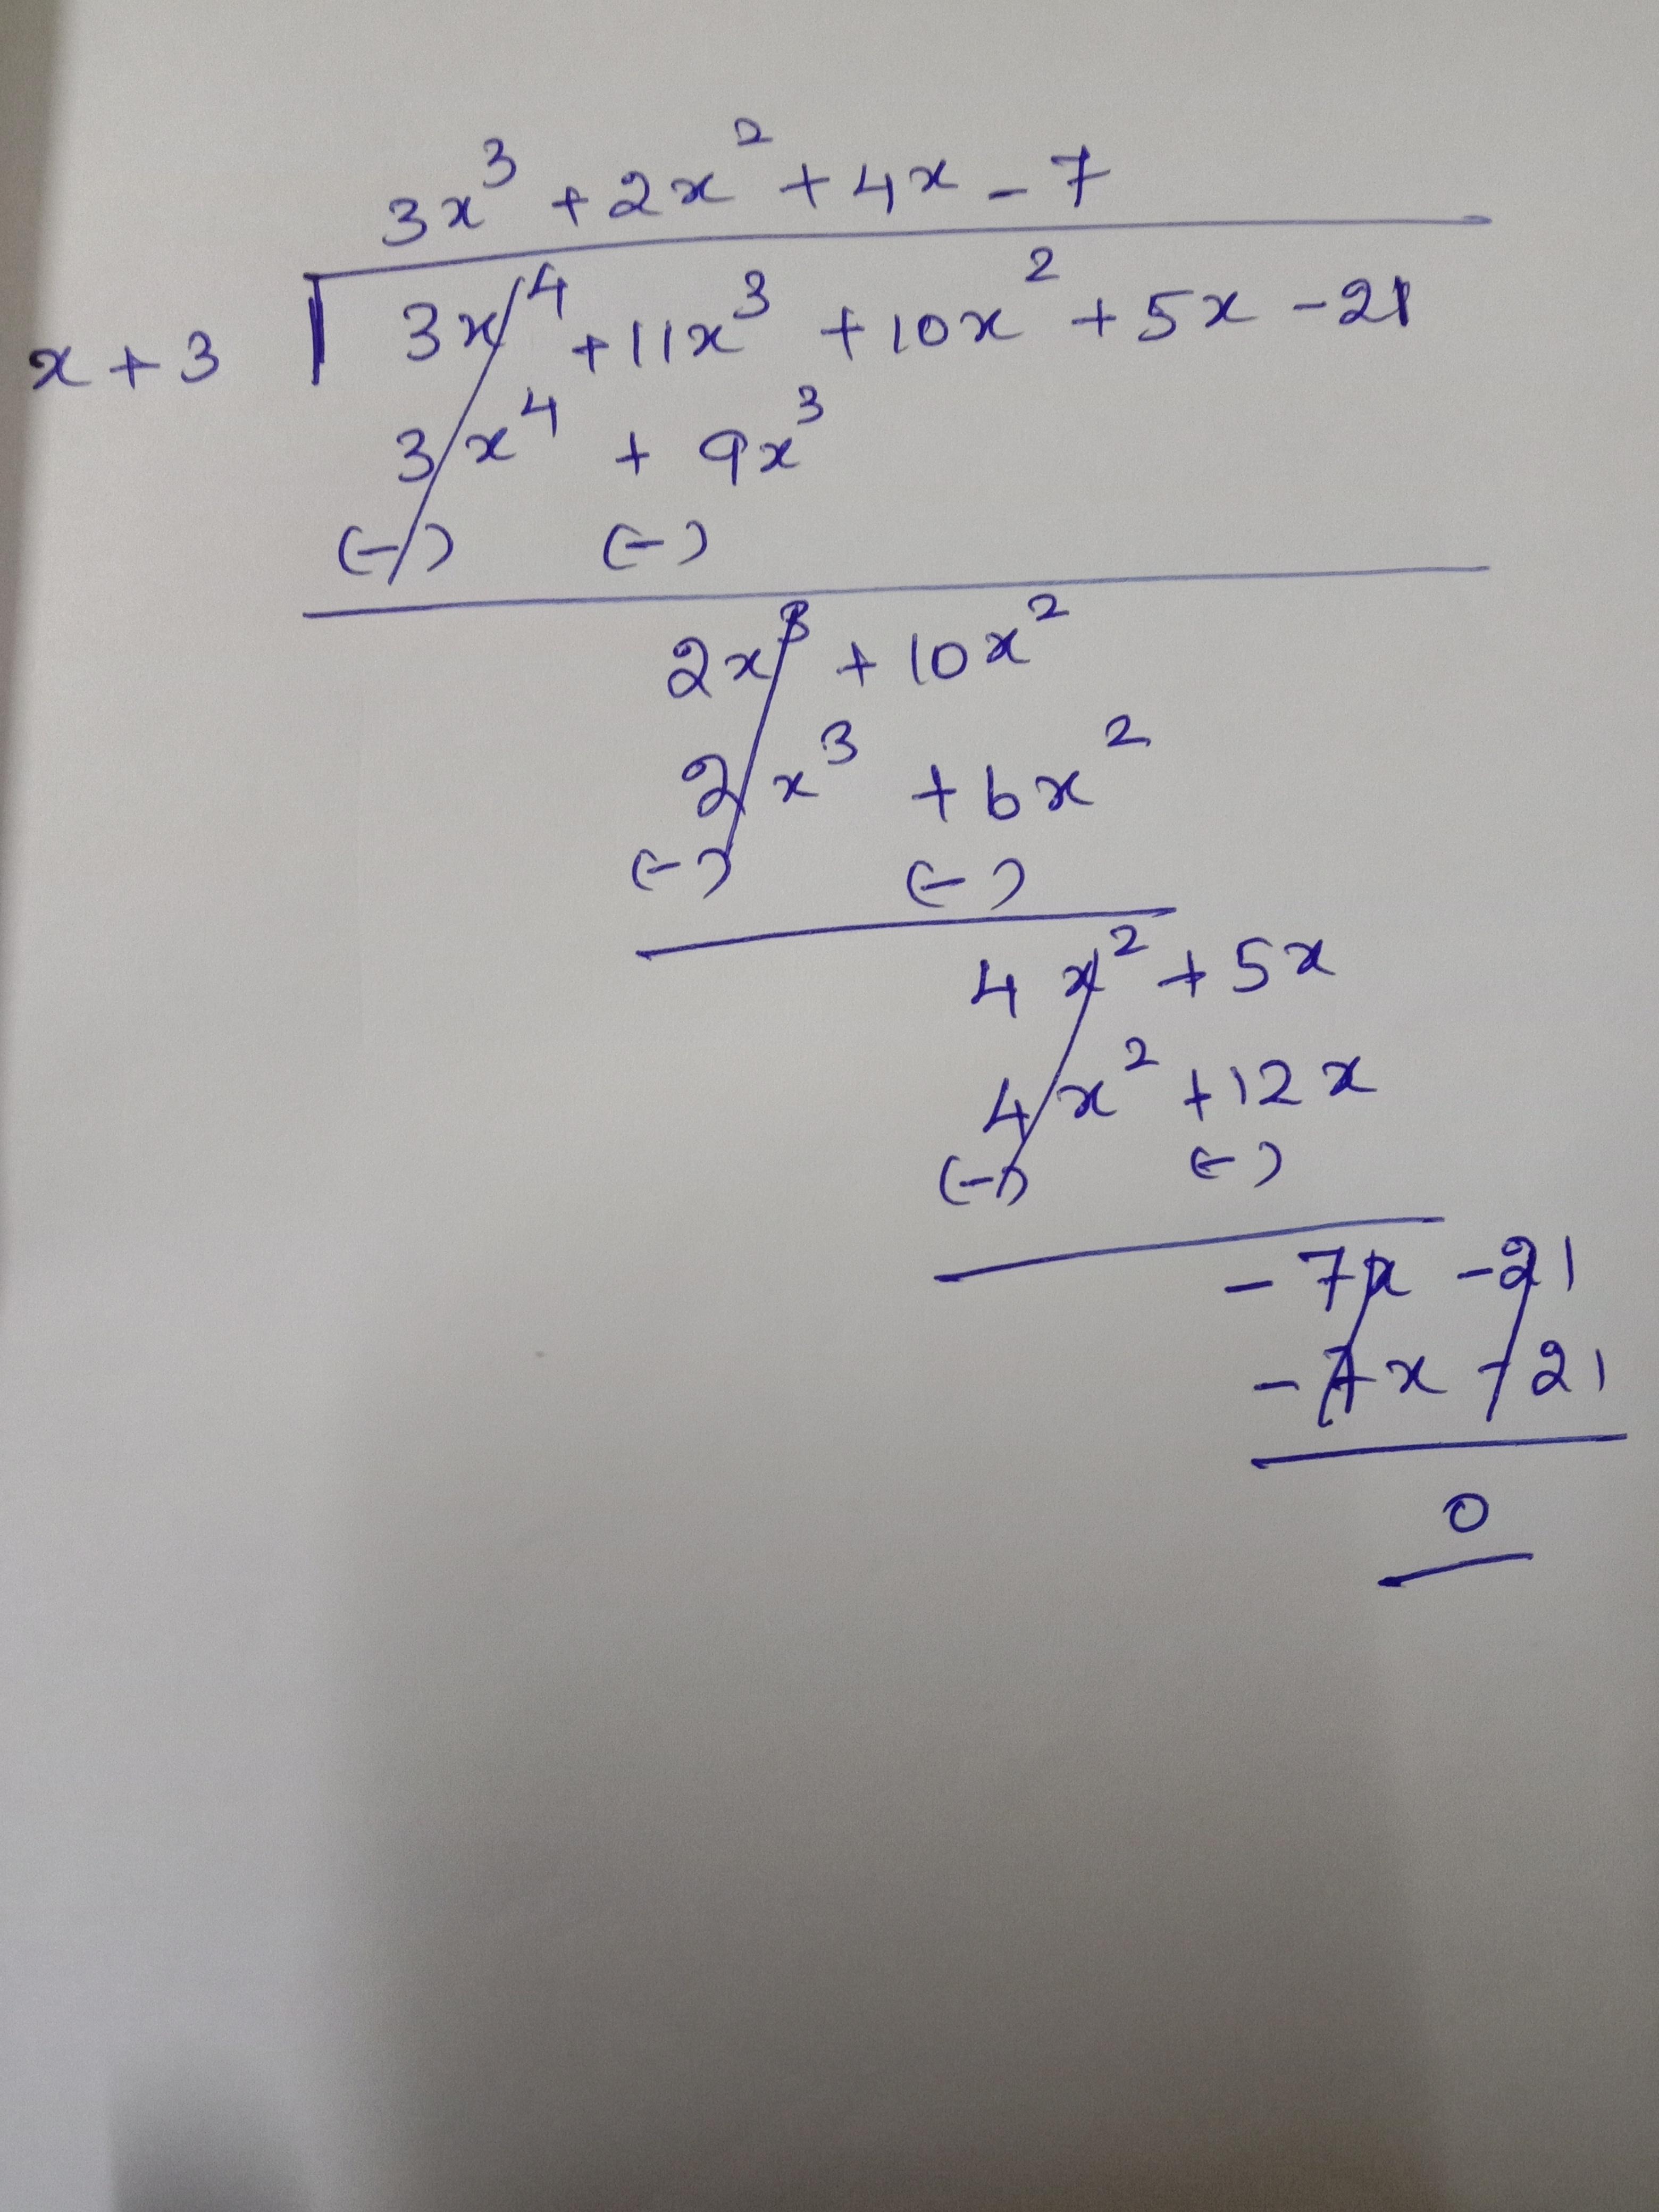 3x³ + 2x² + 4x - 7
x + 3 3x⁴ + 11x³ + 10x² + 5x - 21
3x⁴ + 9x³
(-) (-)
2x³ + 10x²
2x³ + 6x²
(-) (-)
4x² + 5x
4x² + 12x
(-) (-)
- 7x - 21
- 7x - 21
0